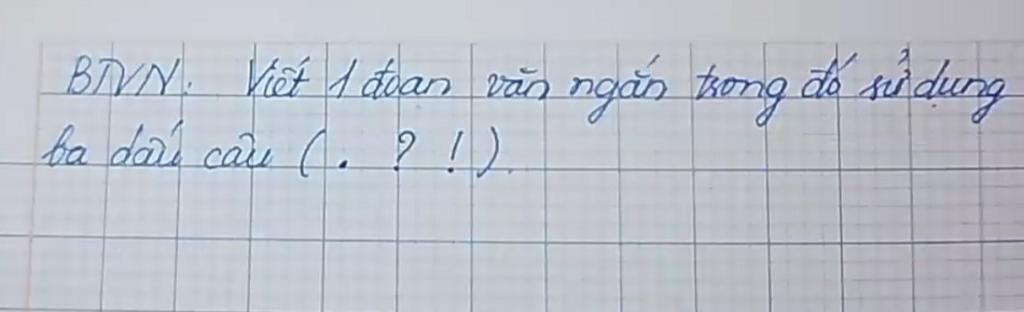 BTVN: Viết 1 đoạn văn ngắn trong đó sử dụng
ba dấu câu ( . ? ! ).